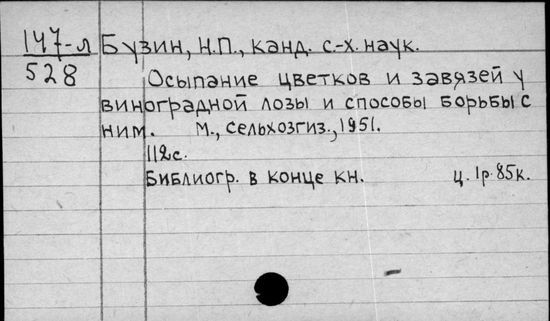 147-л Бузин, Н.П., канд. с.-х. наук.
528
Осыпание цветков и завязей у
виноградной лозы и способы борьбы с
ним. М., Сельхозгиз., 1951.
112с.
Библиогр. в конце кн. ц. 1р. 85к.